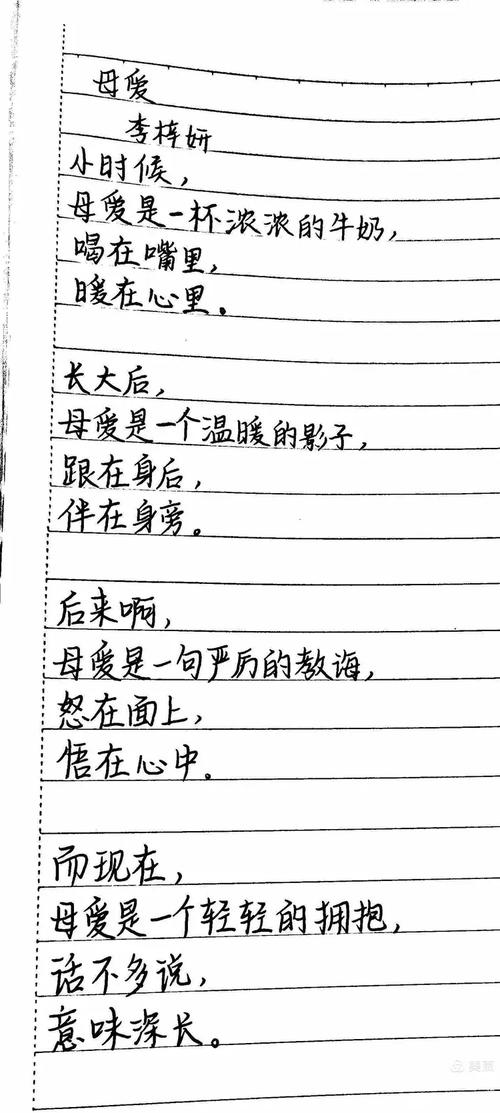 母爱
李梓妍
小时候，
母爱是一杯浓浓的牛奶，
喝在嘴里，
暖在心里。
长大后，
母爱是一个温暖的影子，
跟在身后，
伴在身旁。
后来啊，
母爱是一句严厉的教诲，
怒在面上，
悟在心中。
而现在，
母爱是一个轻轻的拥抱，
话不多说，
意味深长。